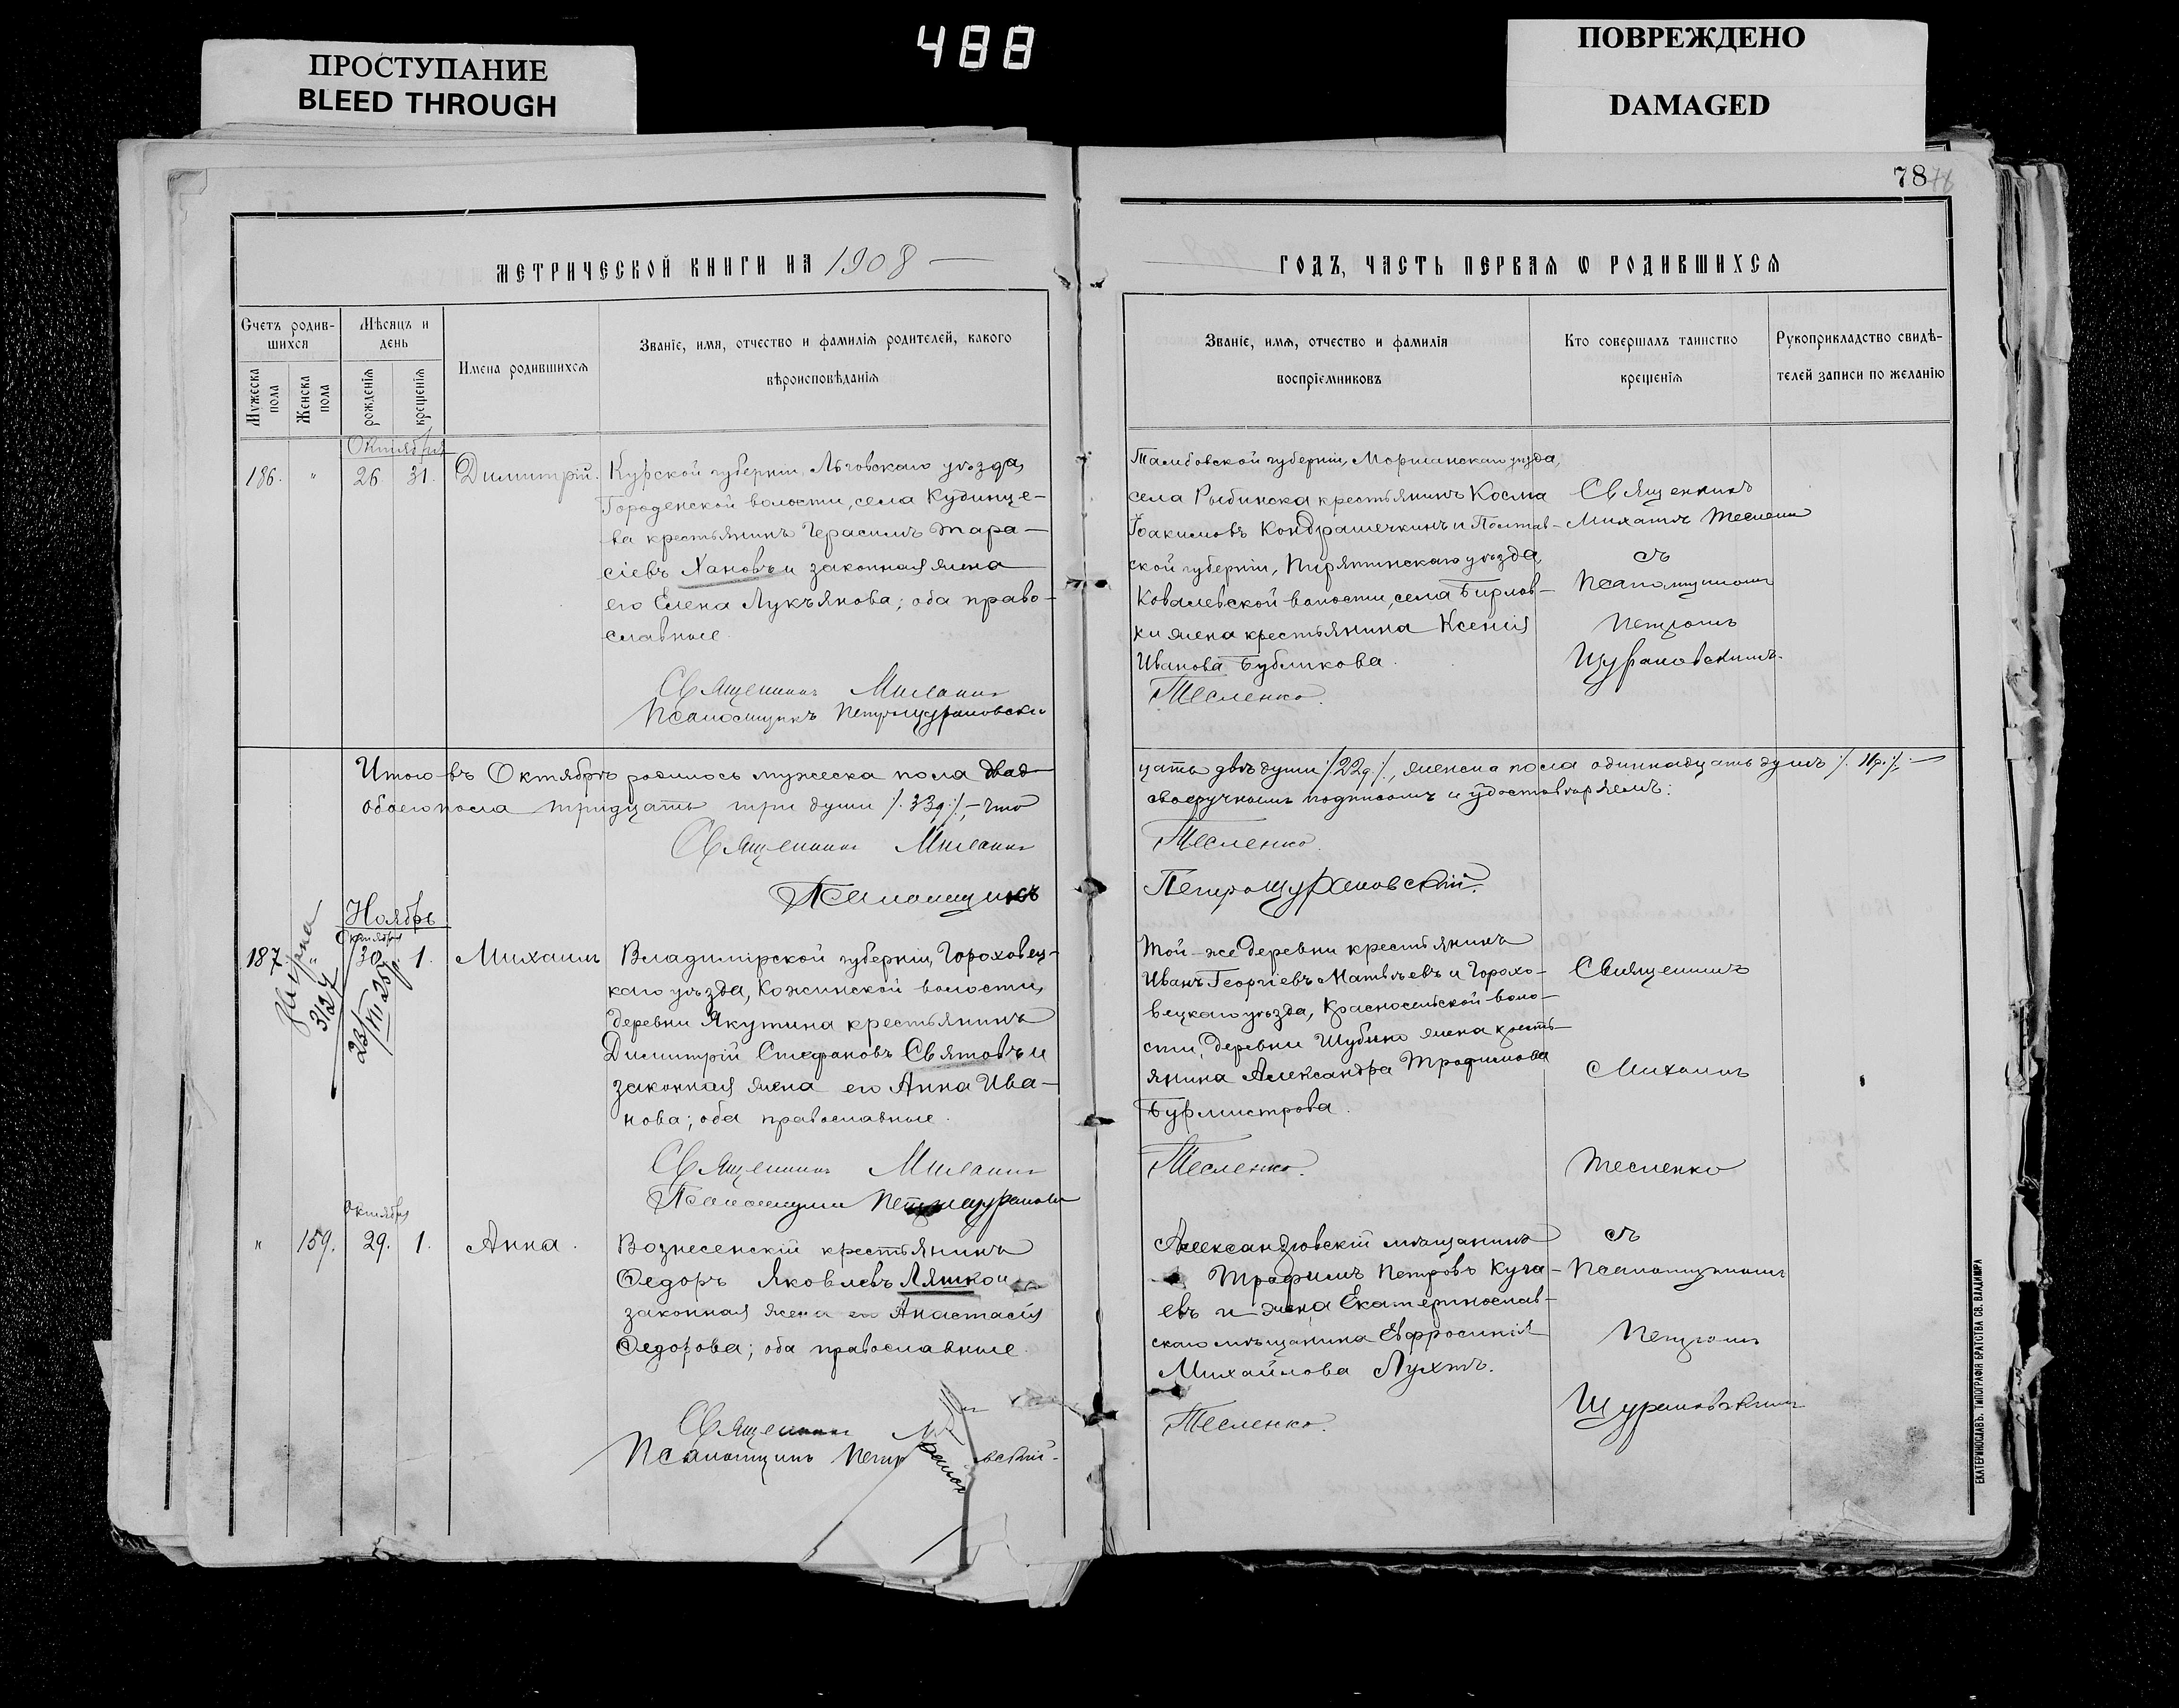 488
ПРОСТУПАНИЕ
BLEED THROUGH
ПОВРЕЖДЕНО
DAMAGED
78
МЕТРИЧЕСКОЙ КНИГИ НА 1908
ГОДЪ, ЧАСТЬ ПЕРВАЯ Ѡ РОДИВШИХСЯ
Счетъ родив-
шихся
Мѣсяцъ и
день
Мужеска
пола
Женска
пола
рожденія
крещенія
Имена родившихся
Званіе, имя, отчество и фамилія родителей, какого
вѣроисповѣданія
Званіе, имя, отчество и фамилія
воспріемниковъ
Кто совершалъ таинство
крещенія
Рукоприкладство свидѣ-
телей записи по желанію
Октября
186. " 26 31. Димитрій.
Курской губерніи, Льговскаго уѣзда,
Городенской волости, села Кудинце-
ва крестьянинъ Герасимъ Тара-
сіевъ Хановъ и законная жена
его Елена Лукъянова; оба право-
славные.
Священникъ Михаилъ
Псаломщикъ Петръ Щурановскій
Тамбовской губерніи, Моршанскаго уѣзда,
села Рыбинска крестьянинъ Косма
Іоакимовъ Кондрашечкинъ и Полтав-
ской губерніи, Пирятинскаго уѣзда
Ковалевской волости, села Бирлов-
ки жена крестьянина Ксенія
Иванова Бубликова.
Тесленко.
Священникъ
Михаилъ Тесленко
съ
Псаломщикомъ
Петромъ
Щурановскимъ.
Итого въ Октябрѣ родилось мужеска пола двад-
цать двѣ души /.22д./., женска пола одиннадцать душъ /.11д./.
обоего пола тридцать три души /.33д./. – что
своеручнымъ подписомъ и удостовѣряемъ:
Священникъ Михаилъ
Тесленко.
Псаломщикъ
Петръ Щурановскій.
Ноябрь
Октября
187. " 30. 1. Михаилъ
3127
Владимірской губерніи, Гороховец-
каго уѣзда, Кожинской волости,
деревни Якутина крестьянинъ
Димитрій Стефановъ Святовъ и
законная жена его Анна Ива-
нова; оба православные.
Священникъ Михаилъ
Псаломщикъ Петръ Щурановскій
Той-же деревни крестьянинъ
Иванъ Георгіевъ Матвѣевъ и Горохо-
вецкаго уѣзда, Красносельской воло-
сти, деревни Шубино жена кресть-
янина Александра Трофимова
Бурмистрова.
Тесленко.
Священникъ
Михаилъ
Тесленко
съ
Псаломщикомъ
Петромъ
Щурановскимъ
Октября
" 159. 29. 1. Анна.
Вознесенскій крестьянинъ
Федоръ Яковлевъ Ляшко и
законная жена его Анастасія
Федорова; оба православные.
Священникъ
Псаломщикъ Петръ
Александровскій мѣщанинъ
Трофимъ Петровъ Куча-
евъ и жена Екатеринослав-
скаго мѣщанина Евфросинія
Михайлова Лухтъ.
Тесленко.
ЕКАТЕРИНОСЛАВЪ. ТИПОГРАФІЯ БРАТСТВА СВ. ВЛАДИМІРА